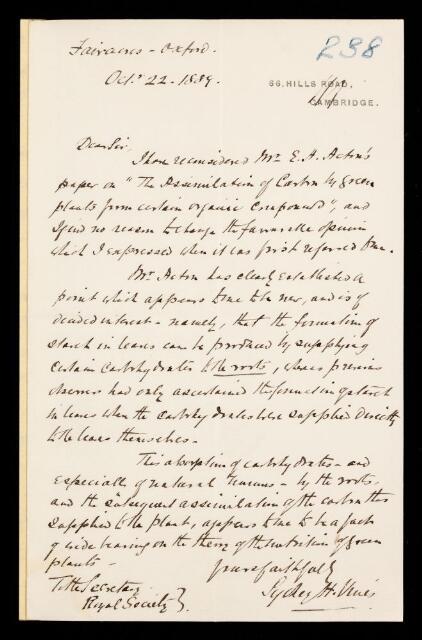 238
Fairacres - Oxford.
Oct.r 22. 1889.
66, HILLS ROAD,
CAMBRIDGE.
Dear Sir,
I have reconsidered Mr. E. H. Acton's
paper on "The Assimilation of Carbon by green
plants from certain organic compounds", and
I find no reason to change the favourable opinion
which I expressed when it was first referred to me.
Mr. Acton has clearly established a
point which appears to me to be new, and is of
decided interest - namely, that the formation of
starch in leaves can be produced by supplying
certain carbohydrates to the roots, whereas previous
observers had only ascertained the formation of starch
in leaves when the carbohydrates were supplied directly
to the leaves themselves -
This absorption of carbohydrates - and
especially of natural humus - by the roots,
and the subsequent assimilation of the carbon thus
supplied to the plant, appears to me to be a fact
of wide bearing on the theory of the nutrition of green
plants -
Yours faithfully
Sydney H. Vines
To the Secretary
Royal Society